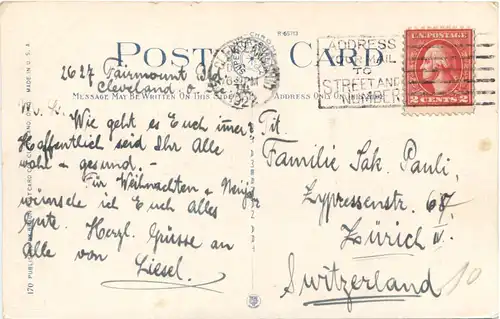 POST CARD
R-68113
2627 Fairmount Bld
Cleveland O.
MESSAGE MAY BE WRITTEN ON THIS SIDE
Wie geht es Euch immer?
Hoffentlich seid Ihr Alle
wohl & gesund. -
Für Weihnachten & Neuj.
wünsche ich Euch alles
Gute. Herzl. Grüsse an
Alle von
Liesel.
ADDRESS ONLY ON THIS SIDE
CLEVELAND, OHIO
1922
ADDRESS
YOUR MAIL
TO
STREET AND
NUMBER
U.S. POSTAGE
2 CENTS 2
Tit.
Familie Jak. Pauli,
Zypressenstr. 68.
Zürich
Switzerland
MADE IN U.S.A.
170